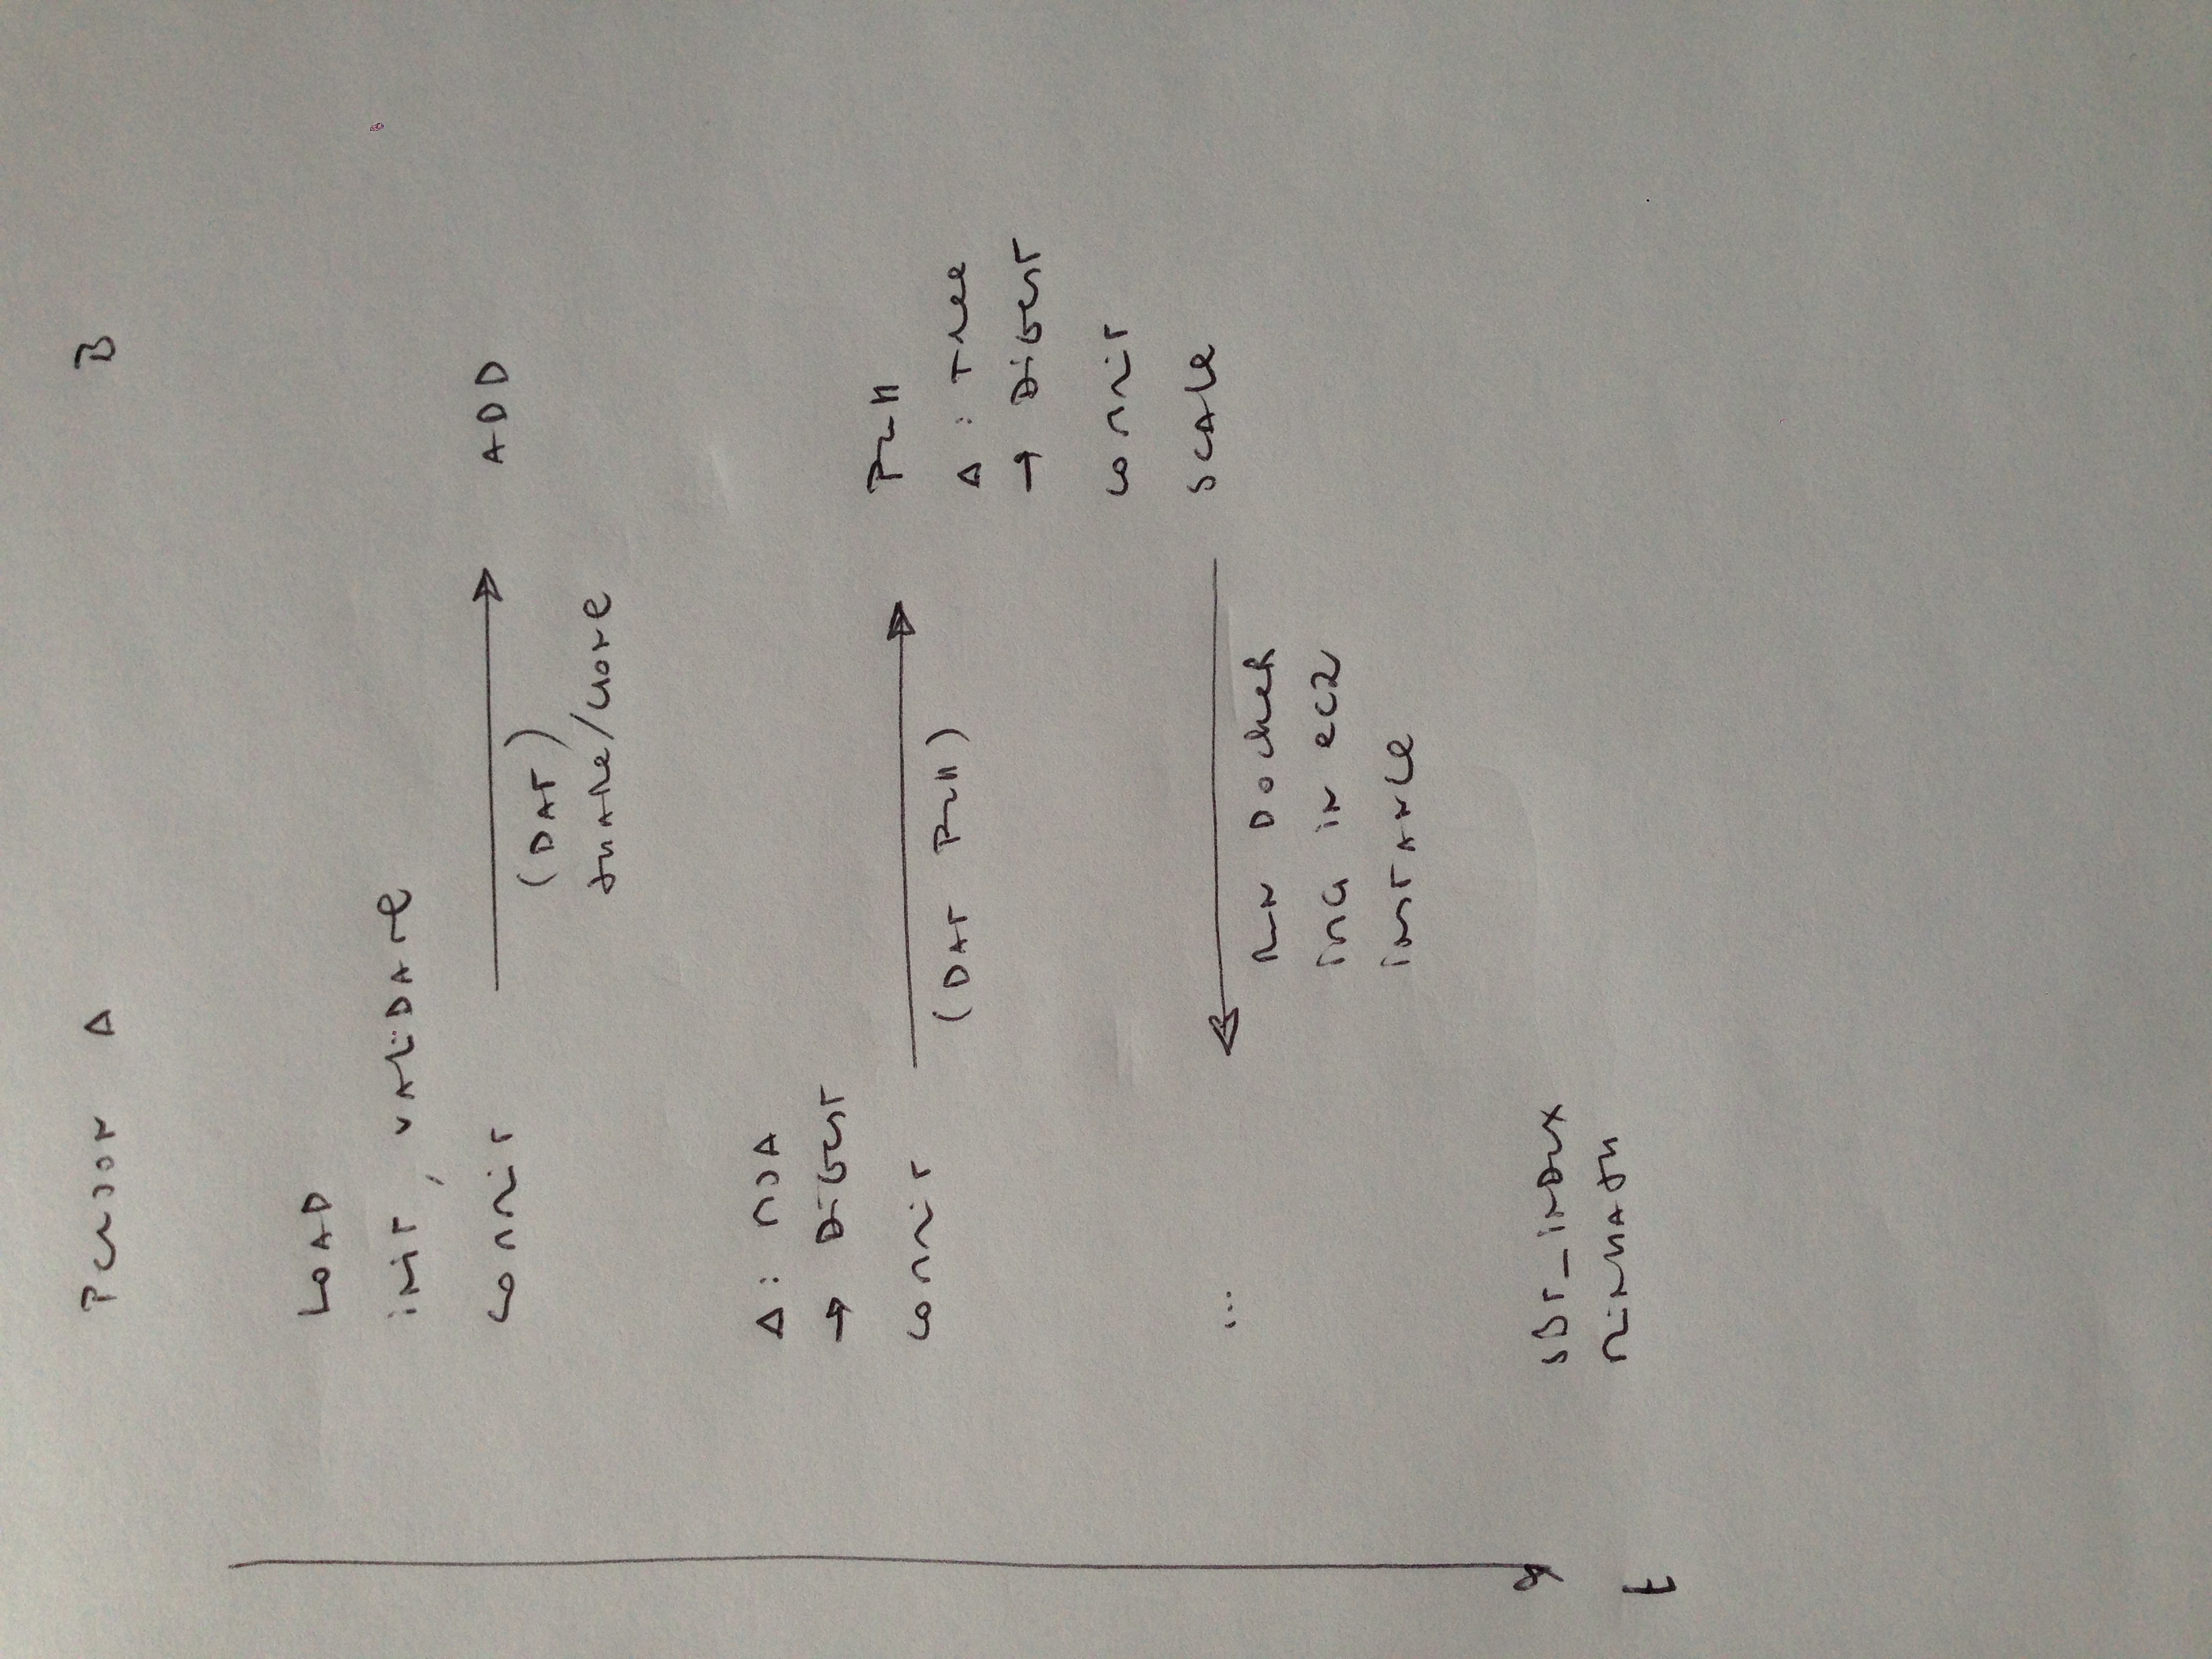 PERSON A B
LOAD
init, VALiDATe
commit ADD
(DAT)
SHARe/cLONe
Δ: MSA
→ DiGEST
commit PULL
(DAT PULL)
Δ: TRee
→ DiGEST
commit
SCALe
...
RUN DockeR
iMG iN eC2
iNSTANCe
SBT_iNDEX
MiNHASH
t